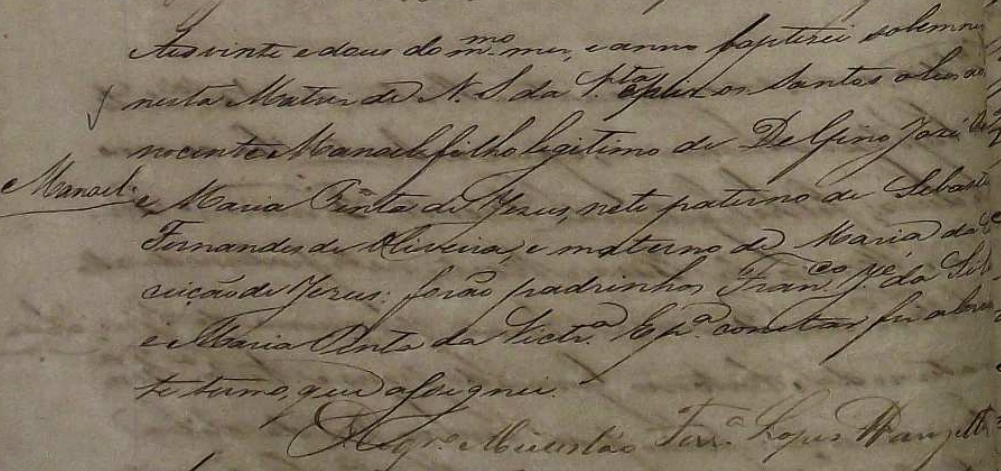 Aos vinte e dous do m.mo mez, e anno baptizei solemne
nesta Matriz de N. S. da P.ta e puz os Santos oleos ao in
nocente Manoel filho legitimo de Delfino José
Manoel
e Maria Pinta de Jezus, neto paterno de Sebasti
Fernandes de Oliveira, e materno de Maria da
ceição de Jezus: forão padrinhos Fran.co J.e da Sil
e Maria Pinta da Vict.a E p.a constar fiz o
te termo, que assignei.
Ferr.a Lopes